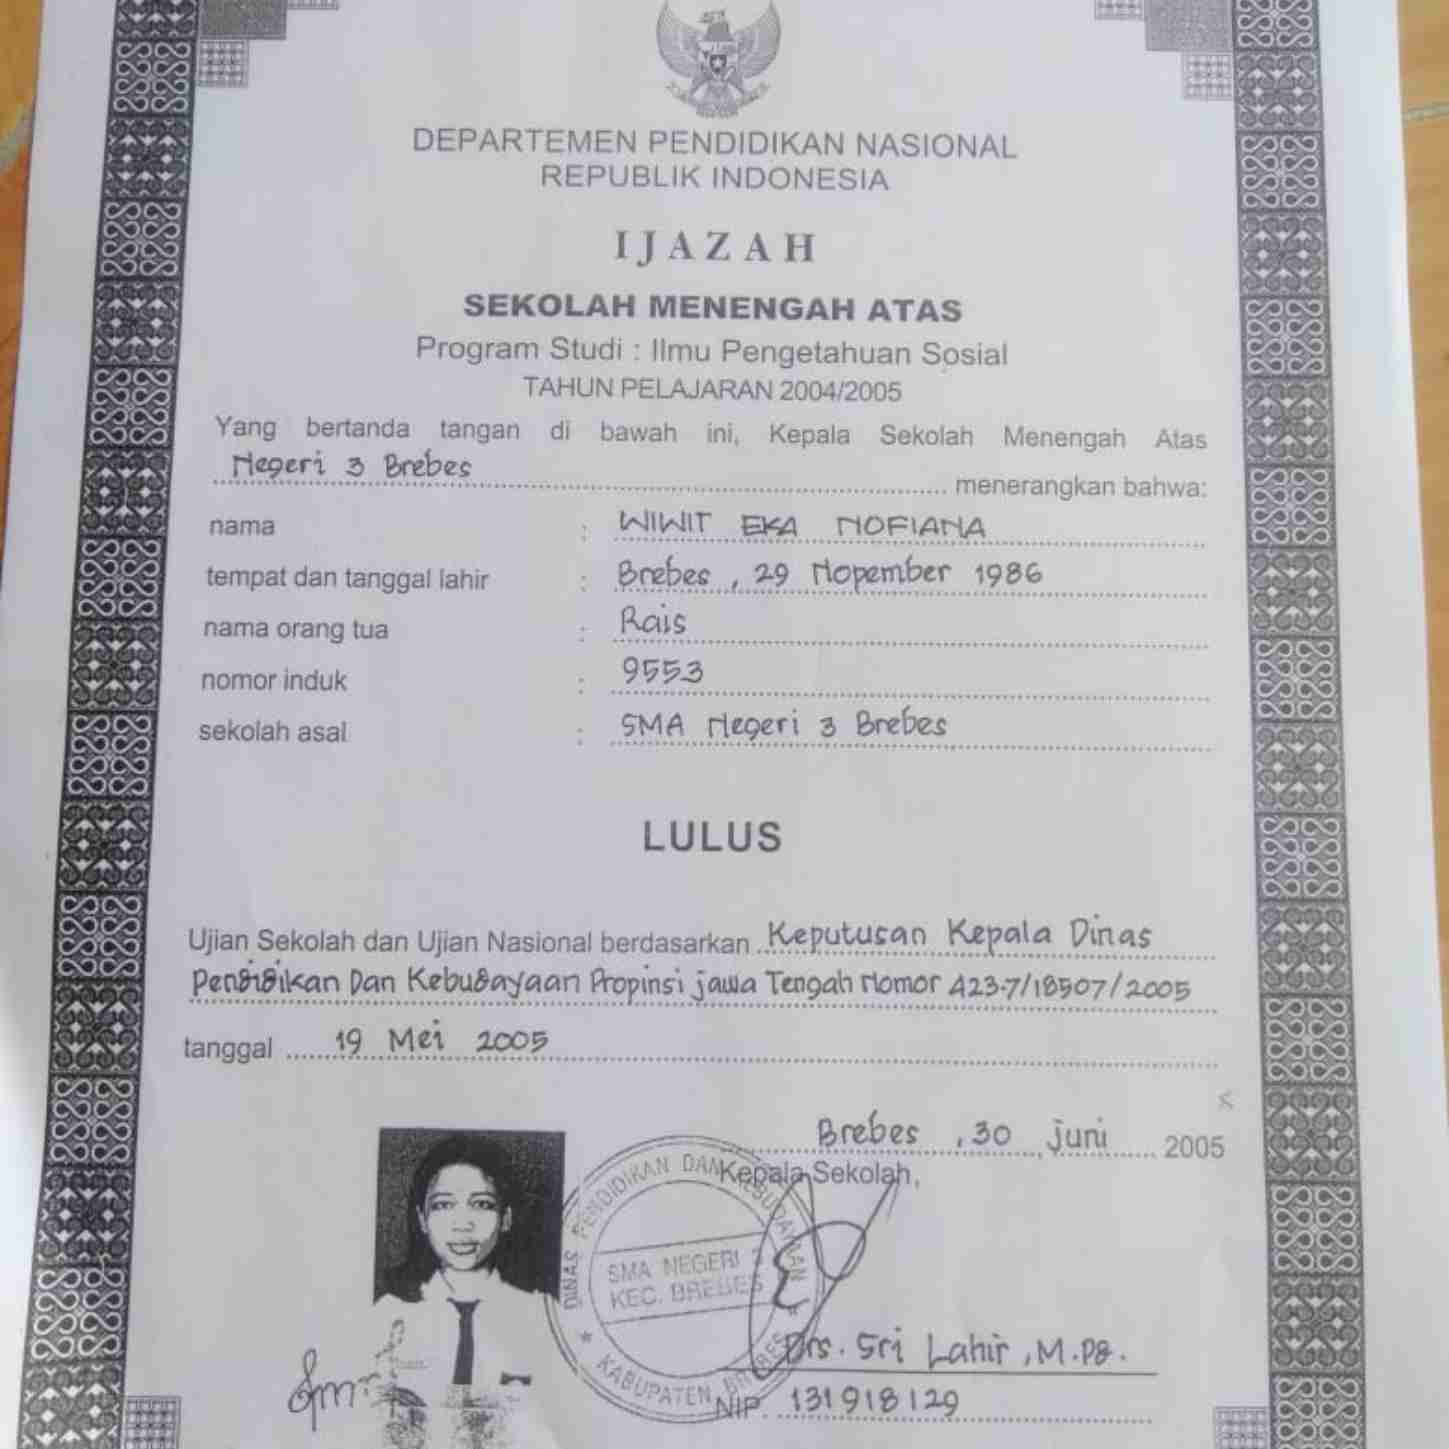 DEPARTEMEN PENDIDIKAN NASIONAL
REPUBLIK INDONESIA
IJAZAH
SEKOLAH MENENGAH ATAS
Program Studi : Ilmu Pengetahuan Sosial
TAHUN PELAJARAN 2004/2005
Yang bertanda tangan di bawah ini, Kepala Sekolah Menengah Atas
Negeri 3 Brebes menerangkan bahwa:
nama : WIWIT EKA NOFIANA
tempat dan tanggal lahir : Brebes, 29 Nopember 1986
nama orang tua : Rais
nomor induk : 9553
sekolah asal : SMA Negeri 3 Brebes
LULUS
Ujian Sekolah dan Ujian Nasional berdasarkan Keputusan Kepala Dinas
Pendidikan Dan Kebudayaan Propinsi jawa Tengah Nomor 423.7/18507/2005
tanggal 19 Mei 2005
Brebes, 30 juni 2005
Kepala Sekolah,
DINAS PENDIDIKAN DAN KEBUDAYAAN
SMA NEGERI
KEC. BREBES
KABUPATEN BREBES
Drs. Sri Lahir, M.Pd.
NIP. 131918129